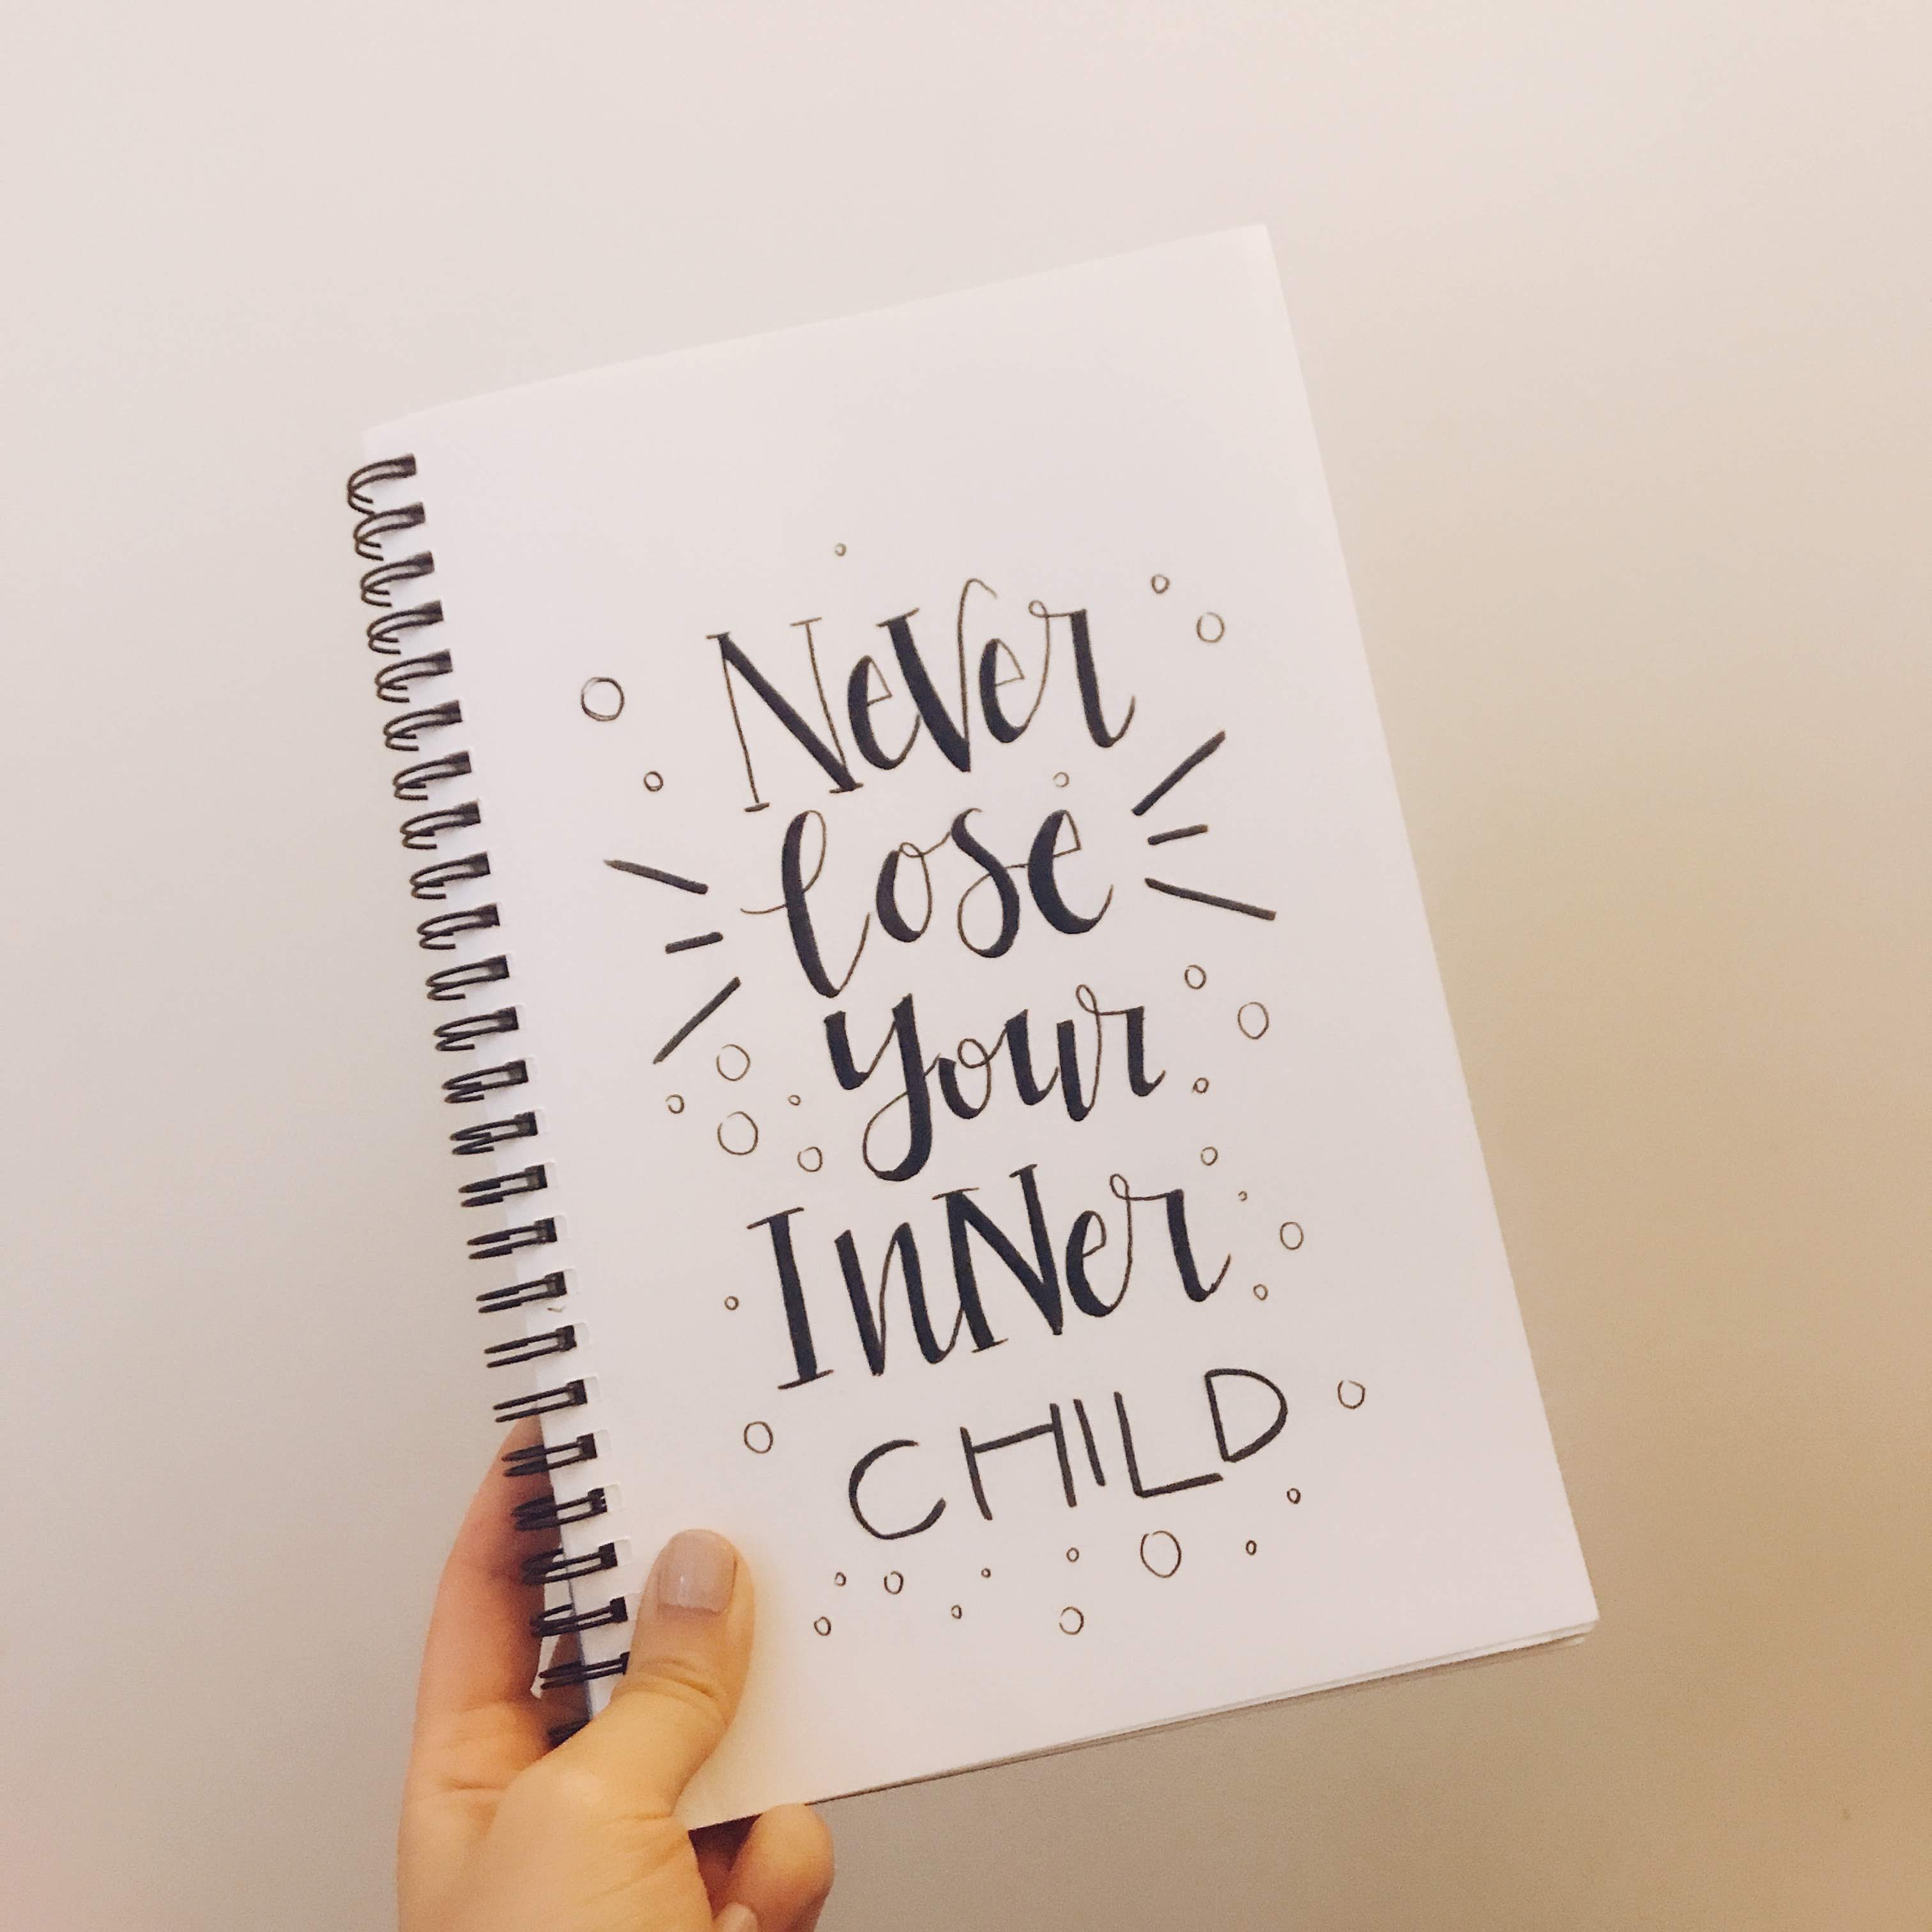 NeVer
lose
your
InNer
CHILD